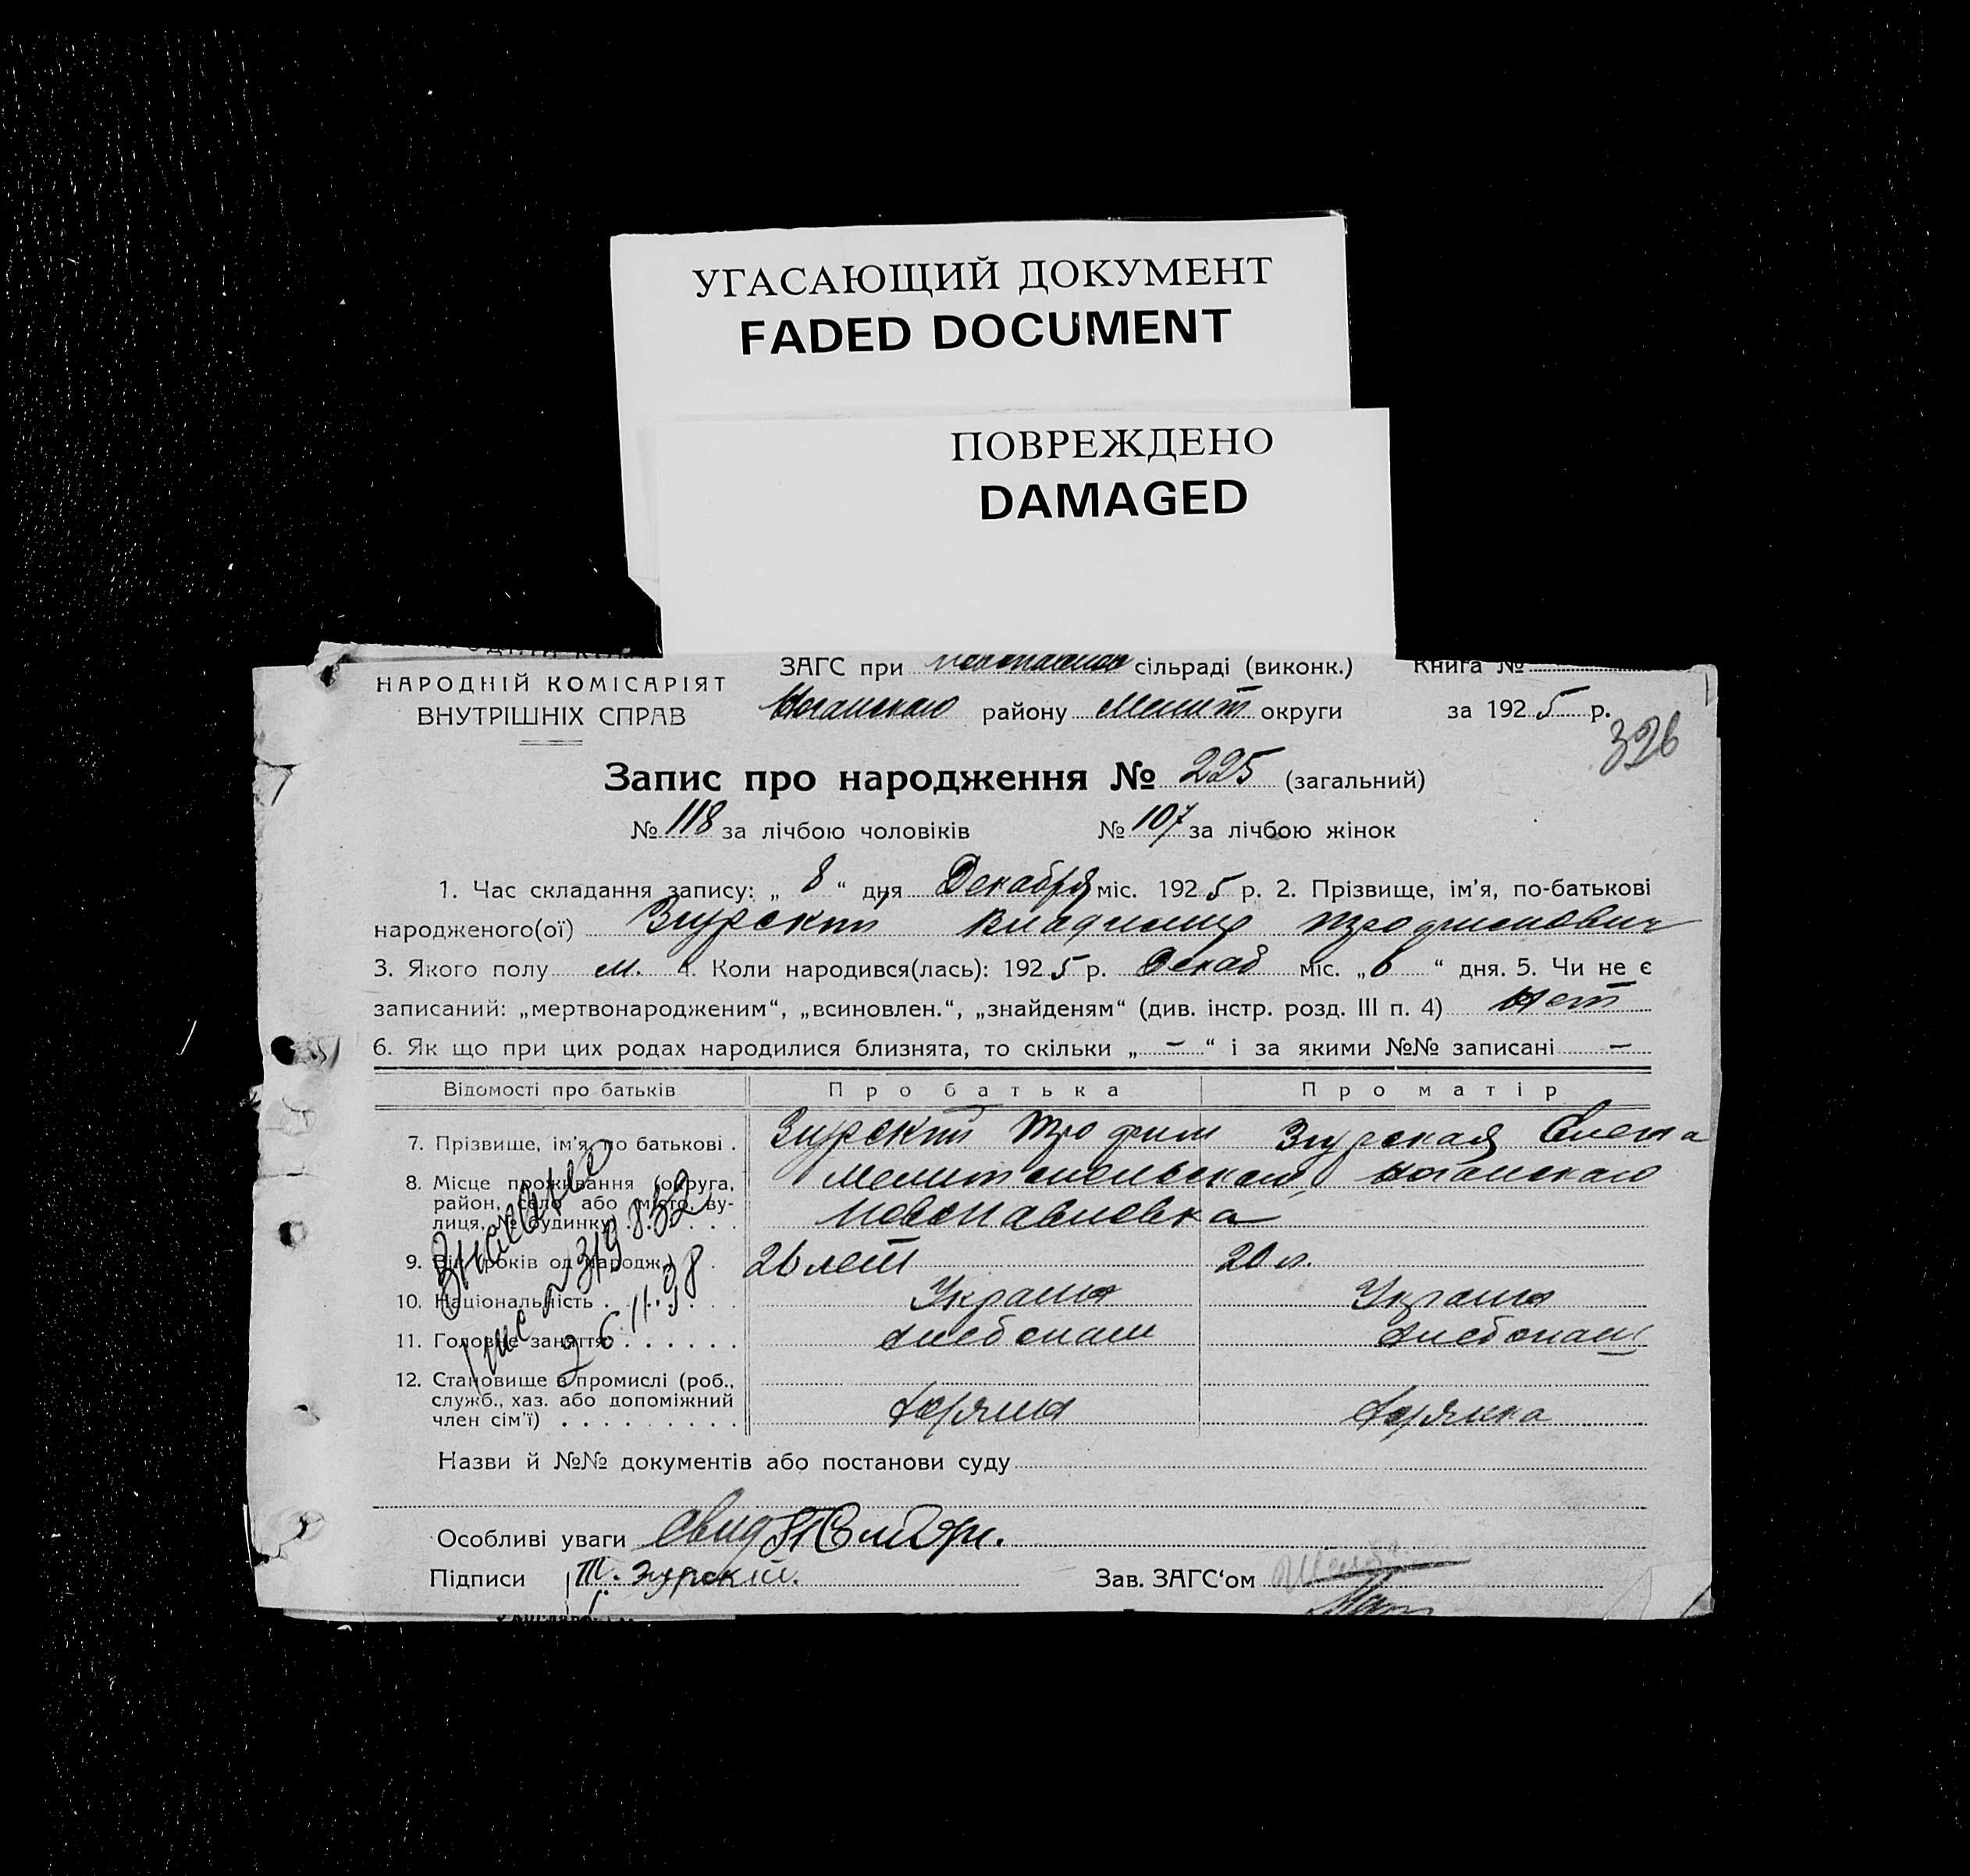 УГАСАЮЩИЙ ДОКУМЕНТ
FADED DOCUMENT
ПОВРЕЖДЕНО
DAMAGED
НАРОДНІЙ КОМІСАРІЯТ
ВНУТРІШНІХ СПРАВ
ЗАГС при сільраді (виконк.) Книга №
Ногайскаго району Мелит округи за 1925 р.
326
Запис про народження № 225 (загальний)
№ 118 за лічбою чоловіків № 107 за лічбою жінок
1. Час складання запису: „ 8 “ дня Декабря міс. 1925 р. 2. Прізвище, ім'я, по-батькові
народженого(ої) Згурскій Владимир Трофимович
3. Якого полу м. 4. Коли народився(лась): 1925 р. Декаб міс. „6“ дня. 5. Чи не є
записаний: „мертвонародженим“, „всиновлен.“, „знайденям“ (див. інстр. розд. III п. 4) Нет
6. Як що при цих родах народилися близнята, то скільки „ — “ і за якими №№ записані —
Відомості про батьків Про батька Про матір
7. Прізвище, ім'я, по батькові . Згурскій Трофим Згурская Елена
8. Місце проживання (округа, район, село або місто, вулиця, № будинку) Мелитопольскаго, Ногайскаго
Новопавловка
9. Вік (років од народж.) 26 лет 20 л.
10. Національність Украин Украин
11. Головне заняття Хлебопаш Хлебопаш
12. Становище в промислі (роб.,
служб., хаз. або допоміжний
член сім'ї) Хозяин Хозяйка
Назви й №№ документів або постанови суду
Особливі уваги
Підписи Т. Згурскій. Зав. ЗАГС'ом